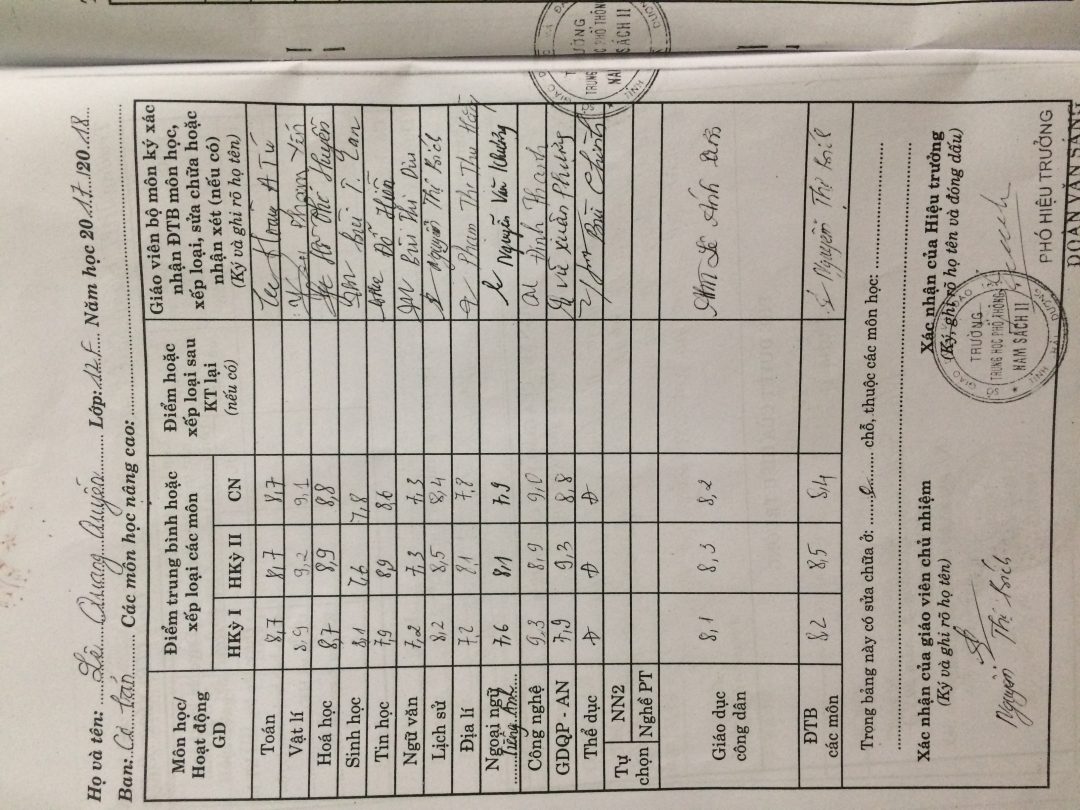 Họ và tên: Lê Quang Quyền Lớp: 12F Năm học 2017./2018
Ban: Cơ bản Các môn học nâng cao:
Môn học/ Hoạt động GD
Điểm trung bình hoặc xếp loại các môn
Điểm hoặc xếp loại sau KT lại (nếu có)
Giáo viên bộ môn ký xác nhận ĐTB môn học, xếp loại, sửa chữa hoặc nhận xét (nếu có) (Ký và ghi rõ họ tên)
HKỳ I HKỳ II CN
Toán 8,7 8,7 8,7
Vật lí 8,9 9,2 9,1 Phạm Yến
Hoá học 8,7 8,9 8,8 Huyền
Sinh học 8,1 7,6 7,8 Bùi T. Lan
Tin học 7,9 8,9 8,6 Đỗ Hiền
Ngữ văn 7,2 7,3 7,3 Bùi Thị Dịu
Lịch sử 8,2 8,5 8,4 Nguyễn Thị Bích
Địa lí 7,2 8,1 7,8 Phạm Thị Thu Hiền
Ngoại ngữ Tiếng Anh 7,6 8,1 7,9 Nguyễn Văn Khương
Công nghệ 9,3 8,9 9,0 Đinh Thanh
GDQP - AN 7,9 9,3 8,8 Vũ Xuân Phương
Thể dục Đ Đ Đ Bùi Chinh
Tự chọn NN2
Nghề PT
Giáo dục công dân 8,1 8,3 8,2 Lê Anh
ĐTB các môn 8,2 8,5 8,4 Nguyễn Thị Bích
Trong bảng này có sửa chữa ở: chỗ, thuộc các môn học:
Xác nhận của giáo viên chủ nhiệm
(Ký và ghi rõ họ tên)
Nguyễn Thị Bích
Xác nhận của Hiệu trưởng
(Ký, ghi rõ họ tên và đóng dấu)
TRƯỜNG
TRUNG HỌC PHỔ THÔNG
NAM SÁCH II
PHÓ HIỆU TRƯỞNG
DOÃN VĂN SÁNG
TRƯỜNG
TRUNG HỌC PHỔ THÔNG
NAM SÁCH II